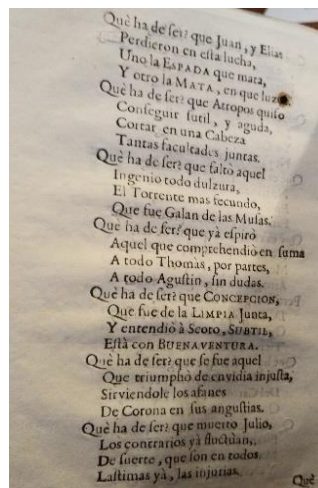 Què ha de ser? que Juan, y Elias
Perdieron en esta lucha,
Uno la ESPADA que mata,
Y otro la MATA, en que luzò.
Què ha de ser? que Atropos quiso
Conseguir sutil, y aguda,
Cortar en una Cabeza
Tantas facultades juntas.
Què ha de ser? que faltò aquel
Ingenio todo dulzura,
El Torrente mas fecundo,
Que fue Galan de las Musas.
Què ha de ser? que yà espirò
Aquel que comprehendiò en suma
A todo Thomàs, por partes,
A todo Agustin, sin dudas.
Què ha de ser? que CONCEPCION,
Que fue de la LIMPIA Junta,
Y entendiò à Scoto, SUBTIL,
Està con BUENAVENTURA.
Què ha de ser? que se fue aquel
Que triumphò de envidia injusta,
Sirviendole los afanes
De Corona en sus angustias.
Què ha de ser? que muerto Julio,
Los contrarios yà fluctuan,
De suerte, que son en todos
Lastimas yà, las injurias.
Què